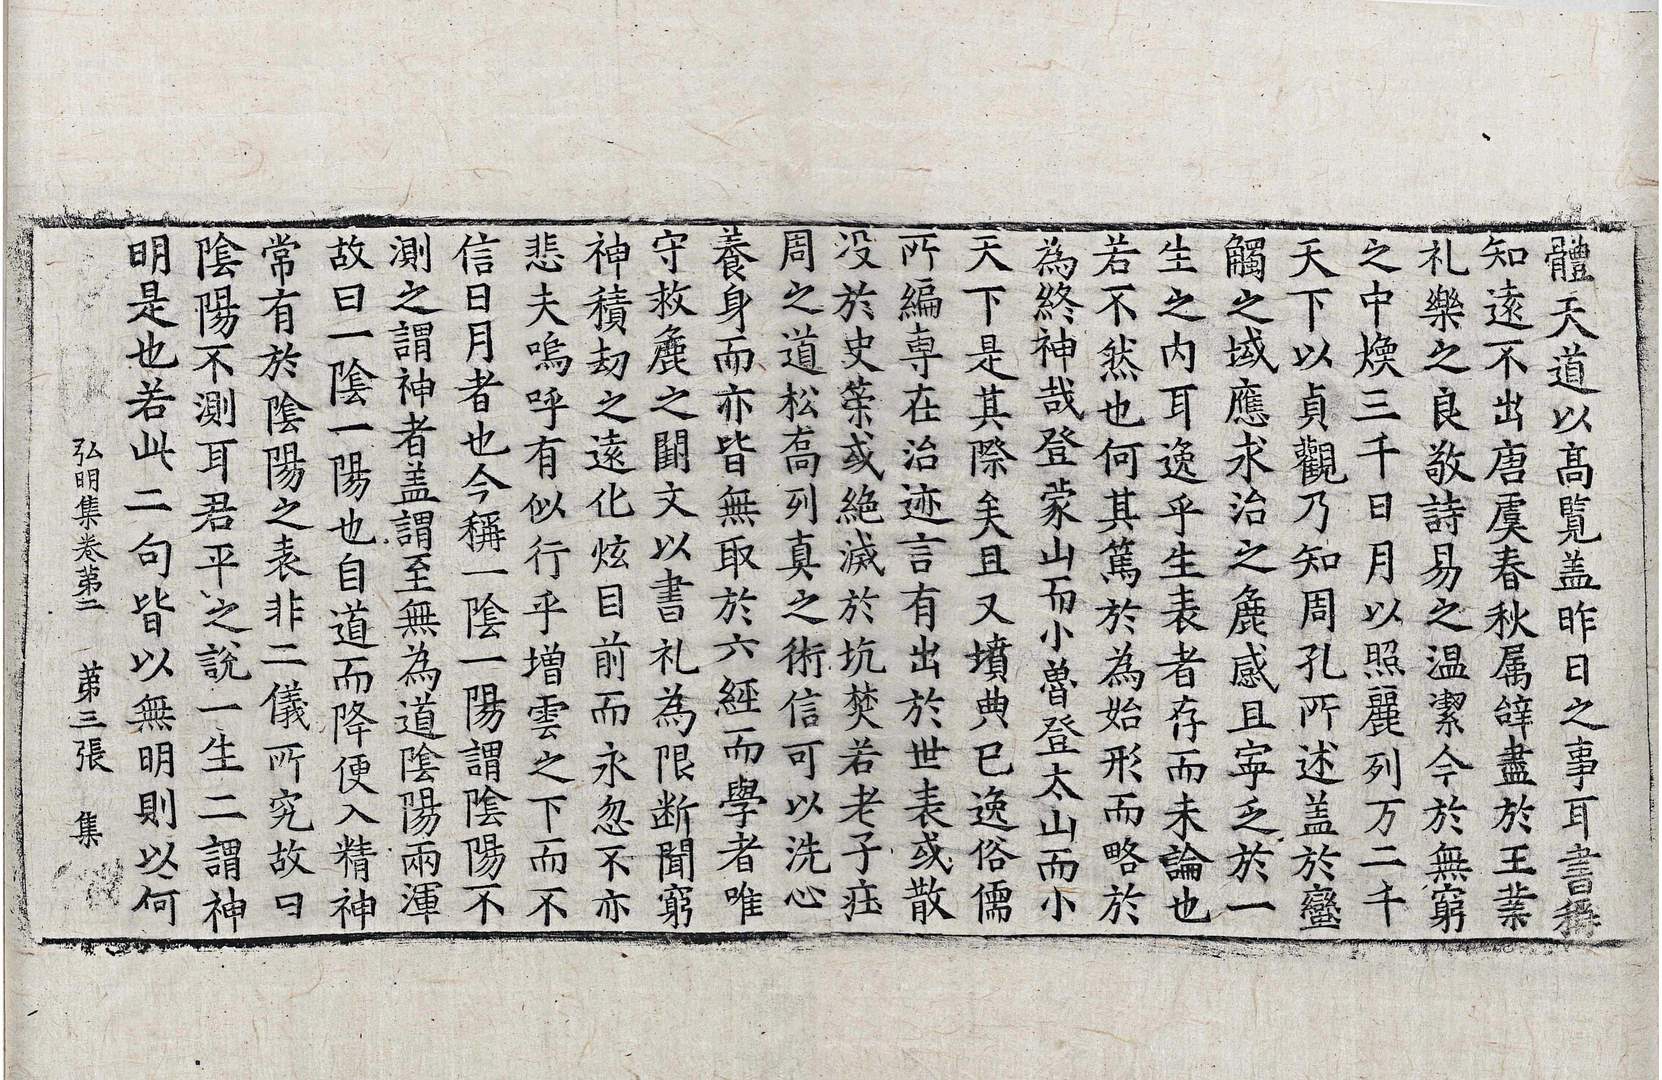 體天道以高覧盖昨日之事耳書稱
知遠不出唐虞春秋属辝盡於王業
礼樂之良敬詩易之温潔今於無窮
之中煥三千日月以照麗列万二千
天下以貞觀乃知周孔所述盖於蠻
觸之域應求治之麁感且寧乏於一
生之内耳逸乎生表者存而未論也
若不然也何其篤於為始形而略於
為終神哉登蒙山而小魯登太山而小
天下是其際矣且又墳典已逸俗儒
所編専在治迹言有出於世表或散
没於史策或絶滅於坑焚若老子荘
周之道松喬列真之術信可以洗心
養身而亦皆無取於六經而學者唯
守救麁之闘文以書礼為限断聞窮
神積劫之遠化炫目前而永忽不亦
悲夫嗚呼有似行乎増雲之下而不
信日月者也今稱一隂一陽謂隂陽不
測之謂神者盖謂至無為道隂陽兩渾
故曰一隂一陽也自道而降便入精神
常有於隂陽之表非二儀所究故曰
隂陽不測耳君平之説一生二謂神
明是也若此二句皆以無明則以何
弘明集卷第二 第三張 集